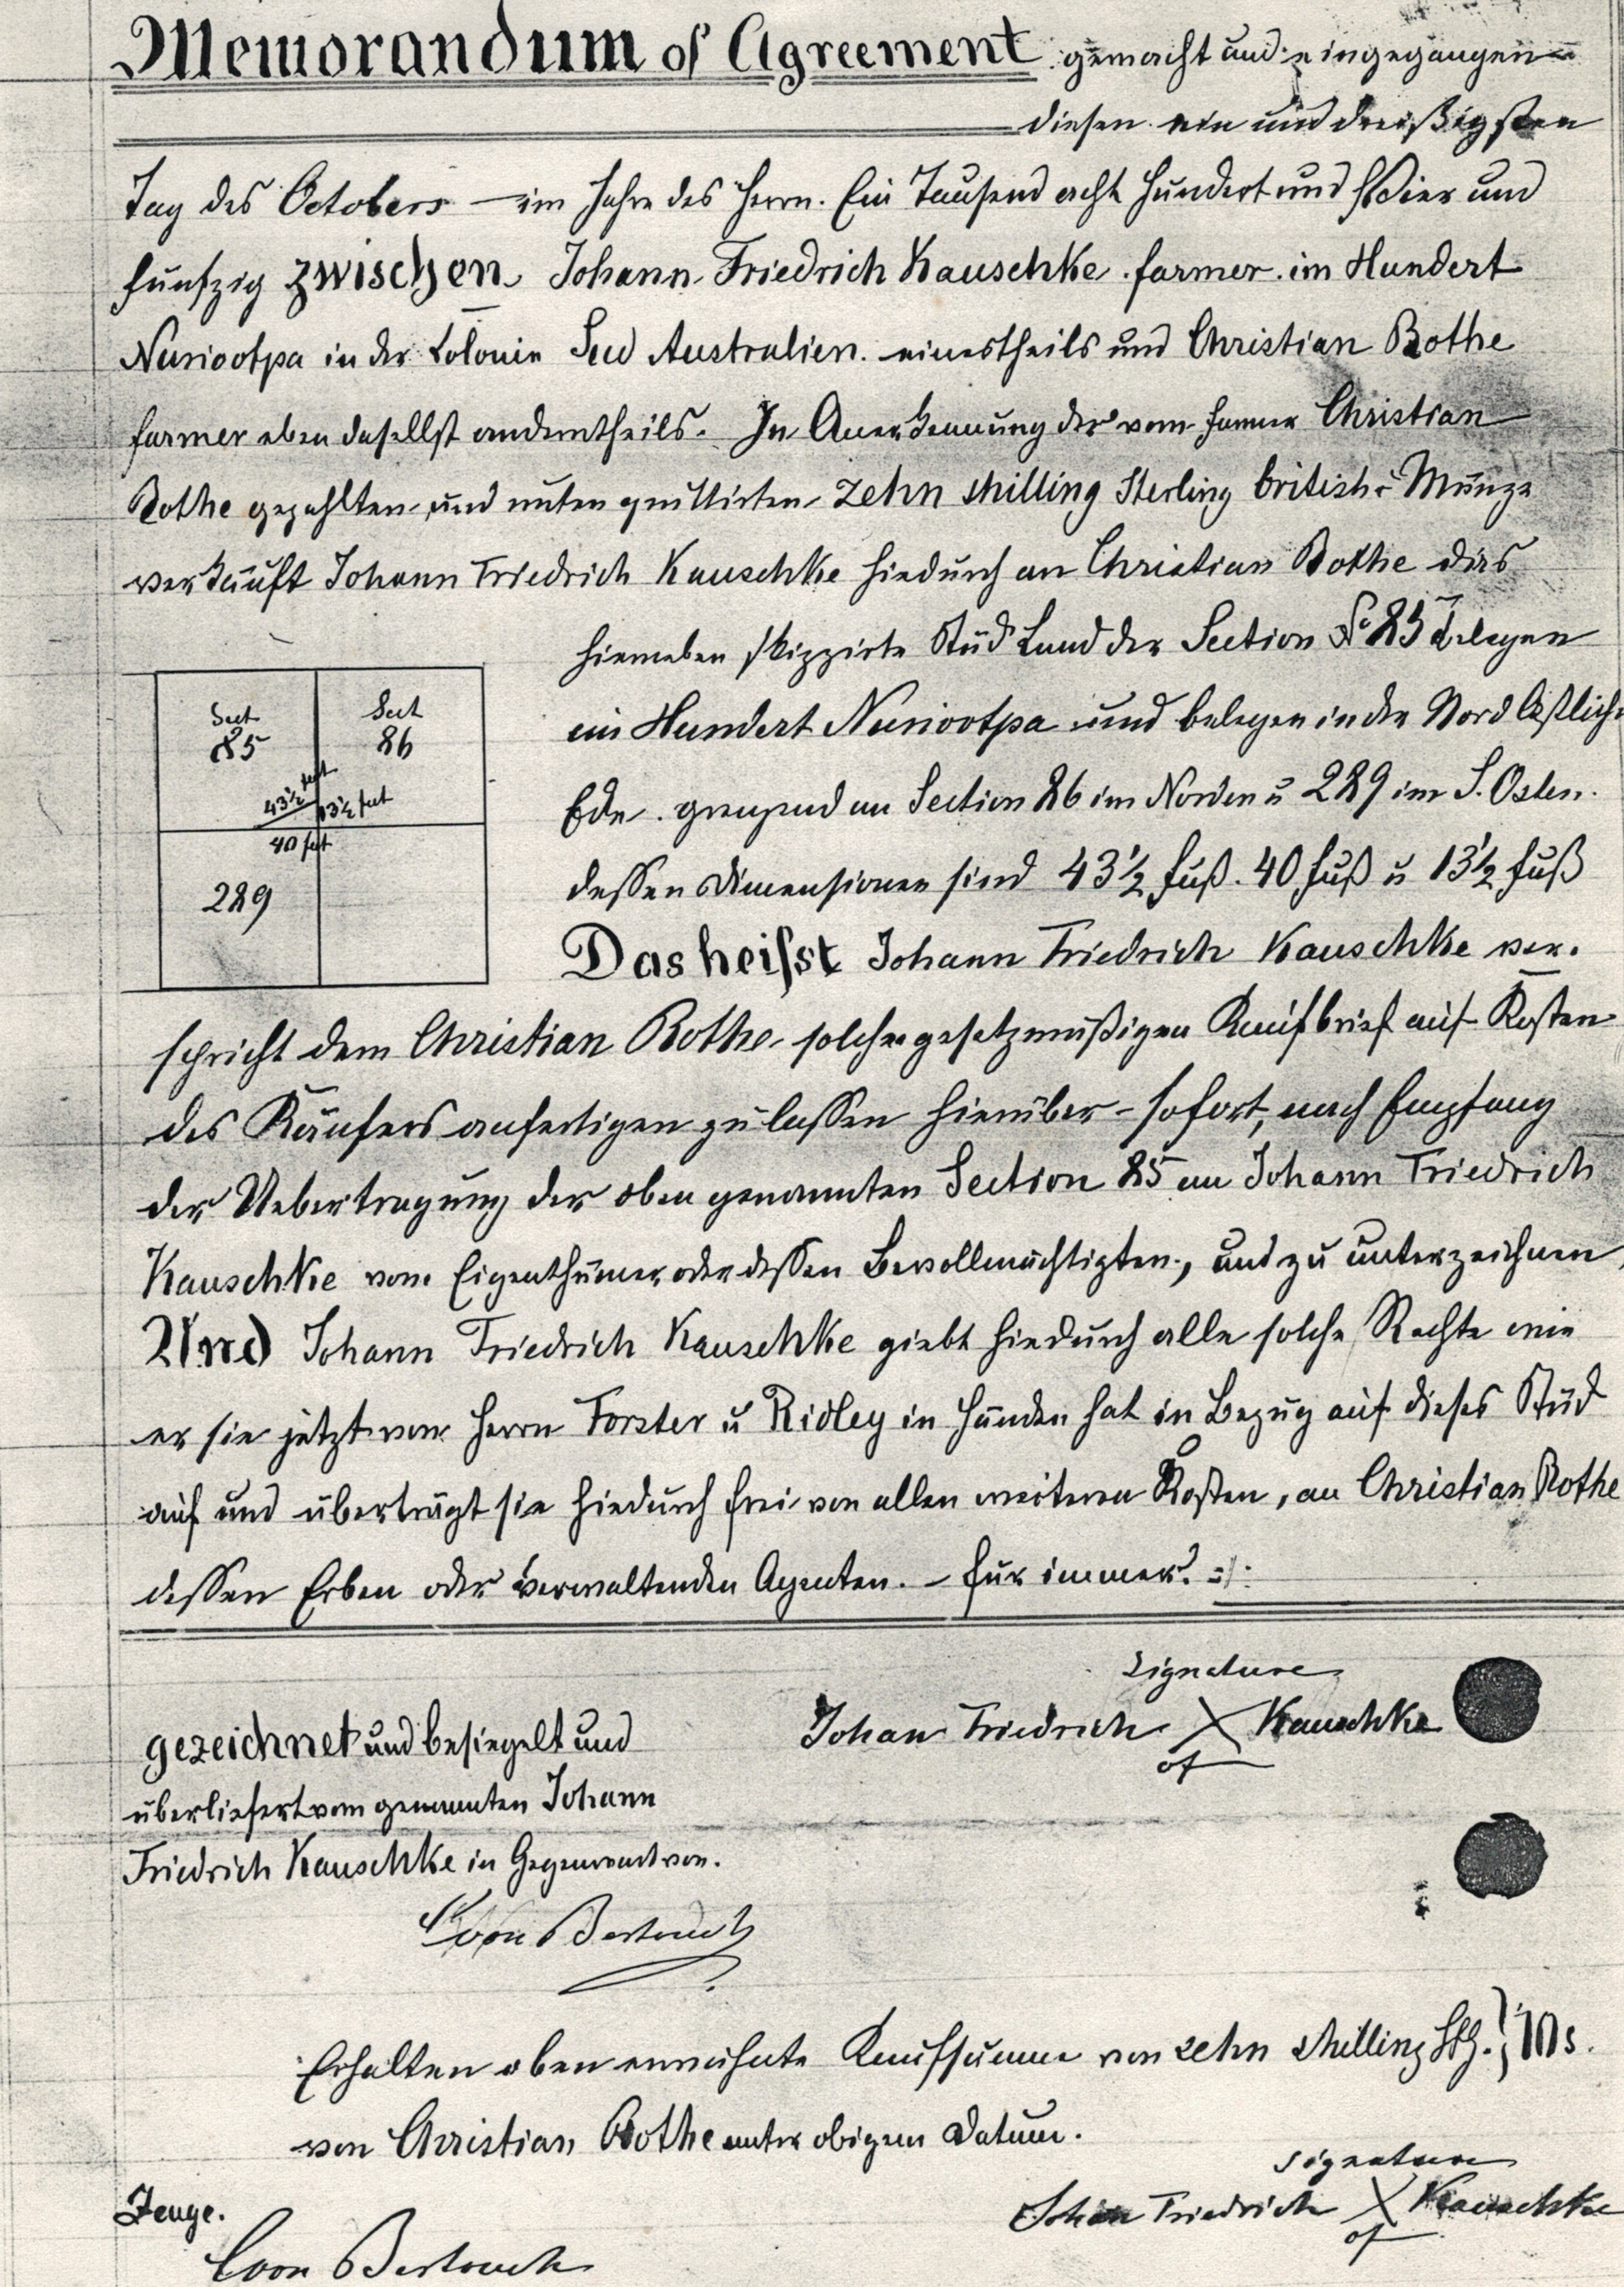 Memorandum of Agreement gemacht und eingegangen
diesen ein und dreißigsten
Tag des Octobers – im Jahre des Herrn. Ein Tausend acht Hundert und Vier und
fünfzig zwischen Johann Friedrich Kauschke. farmer. im Hundert
Nuriootpa in der Colonie Sud Australien. einestheils und Christian Bothe
farmer eben dasellst anderntheils. In Anerkennung der vom farmer Christian
Bothe gezahlten und unten quittirten zehn shilling Sterling british. Münze
verkäuft Johann Friedrich Kauschke hiedurch an Christian Bothe das
hierneben skizzirte Stück Land der Section No 85 belegen
im Hundert Nuriootpa und belegen in der Nord Östlich.
Ecke. grenzend an Section 86 im Norden u 289 im S. Osten.
dessen Dimensionen sind 43½ fuß. 40 fuß u 13½ fuß
Sect 85
Sect 86
43½ feet
13½ feet
40 feet
289
Das heisst Johann Friedrich Kauschke ver.
spricht dem Christian Bothe solchen gesetzmäßigen Kaufbrief auf Kosten
des Käufers anfertigen zu lassen hierüber – sofort, nach Empfang
der Uebertragung der oben genannten Section 85 an Johann Friedrich
Kauschke vom Eigenthümer oder dessen Bevollmächtigten, und zu unterzeichnen,
Und Johann Friedrich Kauschke giebt hiedurch alle solche Rechte wie
er sie jetzt von Herrn Forster u Ridley in Händen hat in Bezug auf dieses Stück
auf und überträgt sie hiedurch frei von allen weiteren Kosten, an Christian Bothe
dessen Erben oder verwaltenden Agenten. – für immer.
signature
Johan Friedrich X Kauschke
of
gezeichnet und besiegelt und
überliefert vom genannten Johann
Friedrich Kauschke in Gegenwart von.
C von Bertouch
Erhalten oben erwähnte Kaufsumme von zehn shilling Stg. } 10s.
von Christian Bothe unter obigem Datum.
signature
Johan Friedrich X Kauschke
of
Zeuge.
C von Bertouch